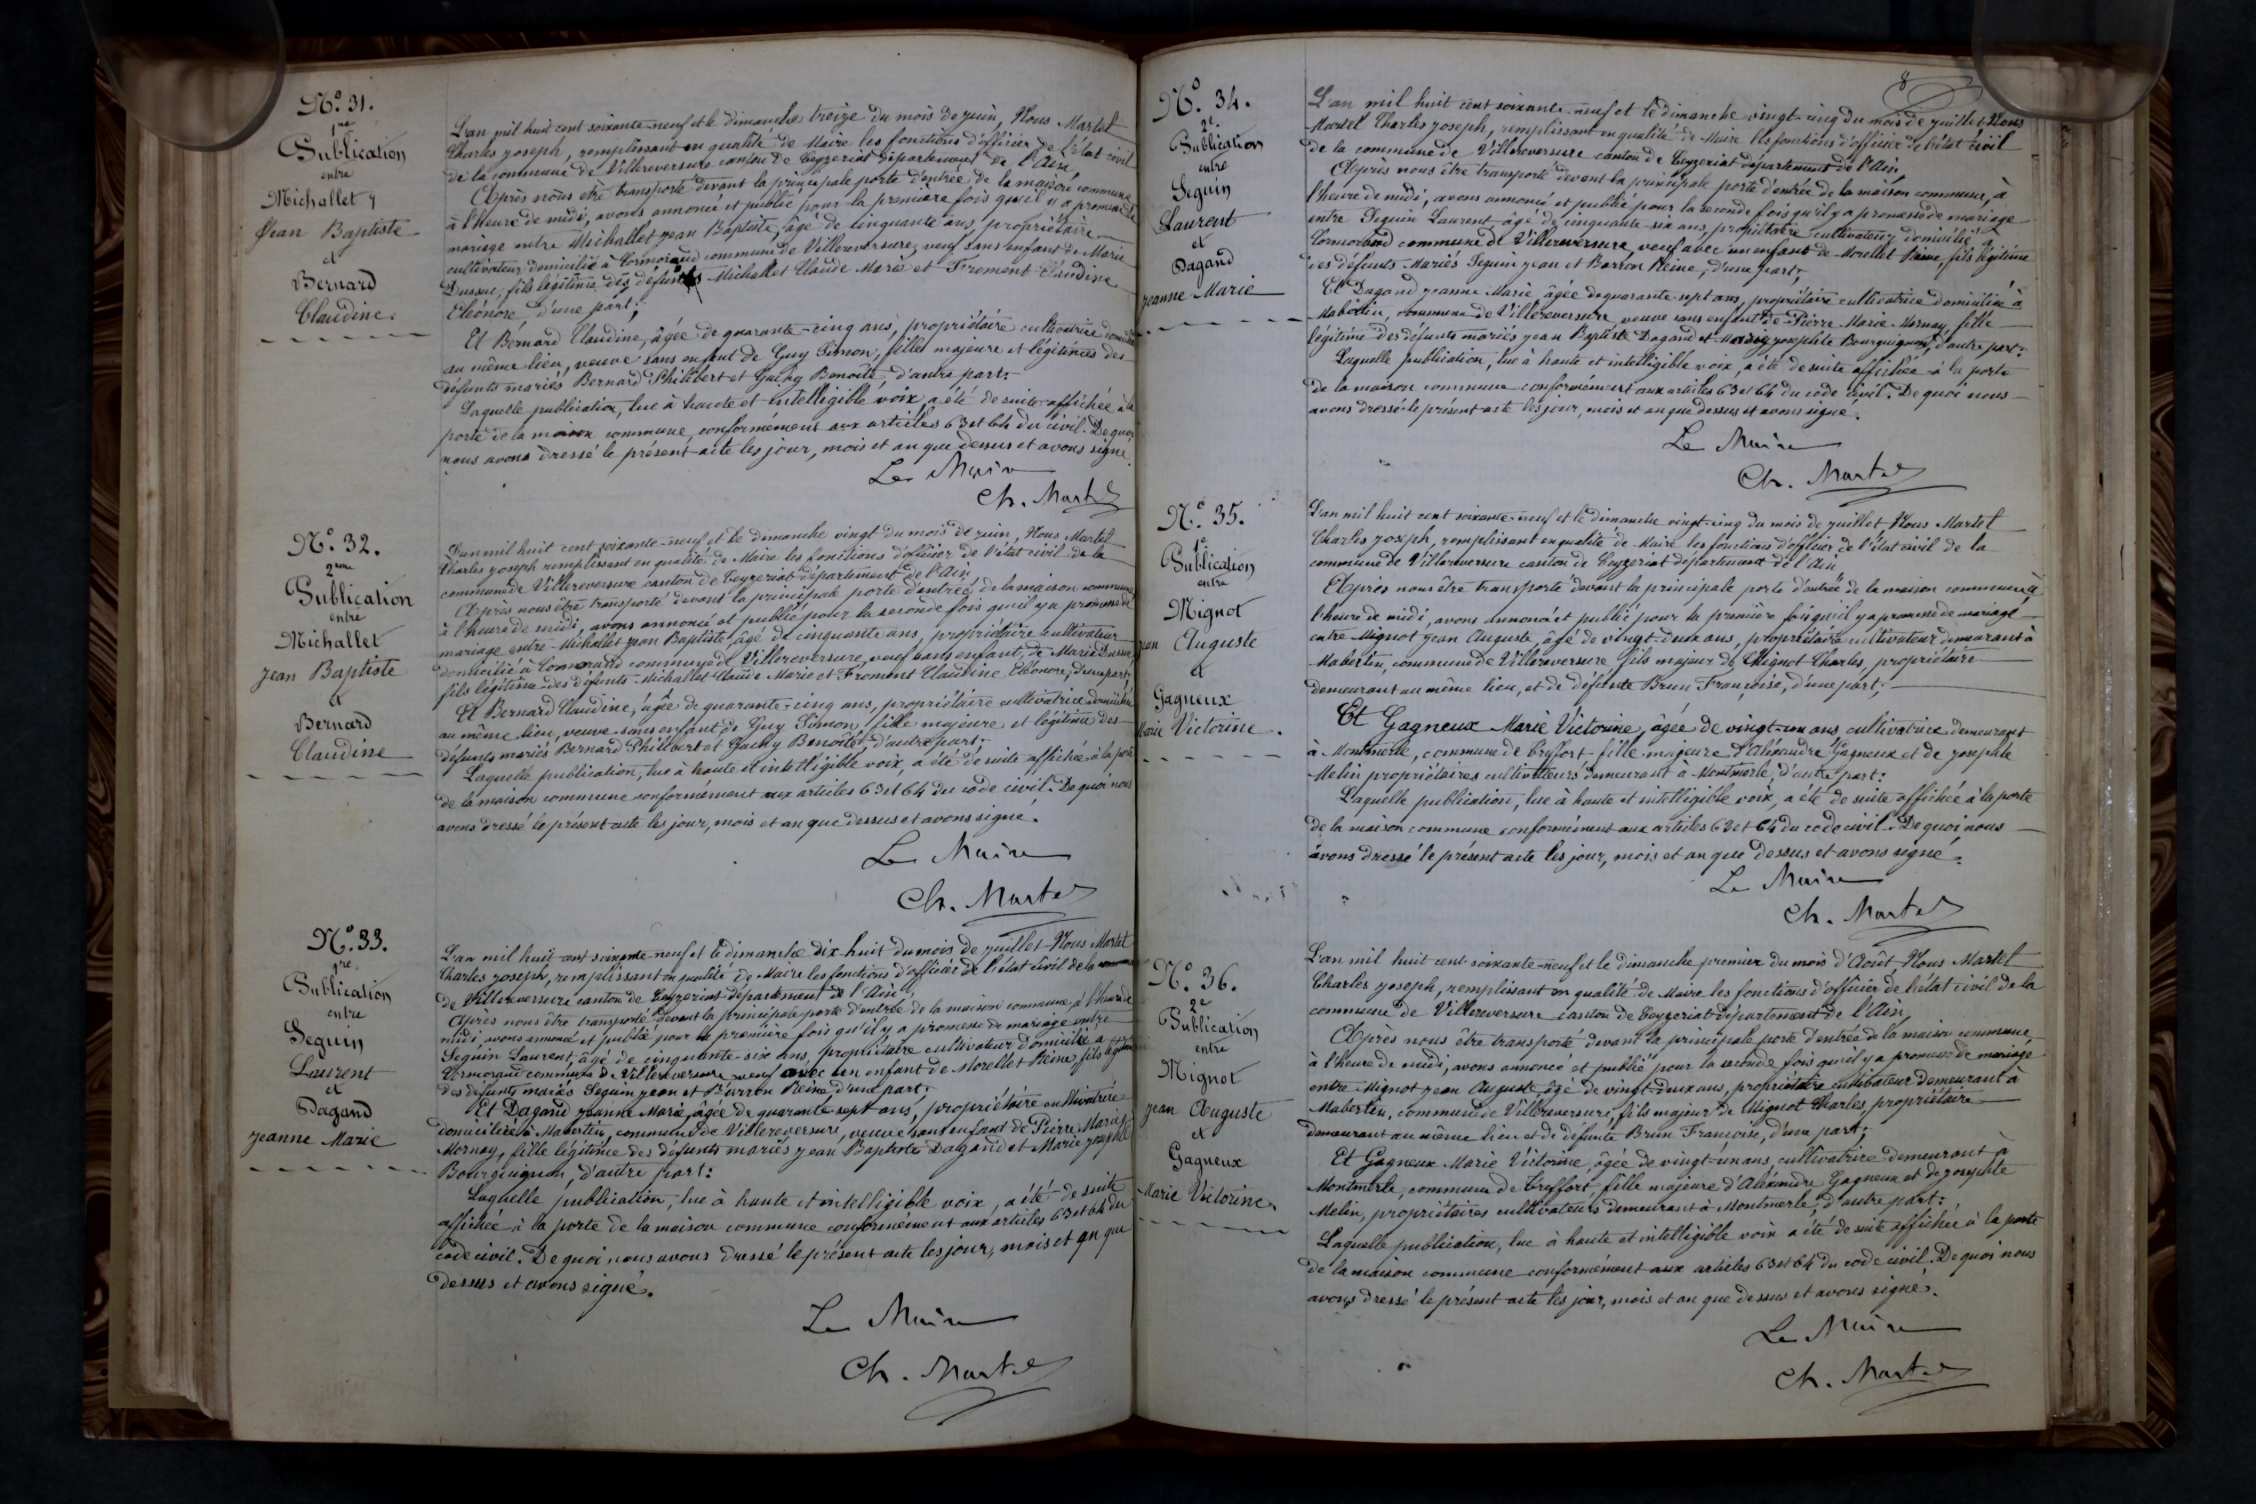 N° 31.
1re
Publication
entre
Michallet
Jean Baptiste
et
Bernard
Claudine.
L'an mil huit cent soixante-neuf et le dimanche treize du mois de juin, Nous Martel
Charles Joseph, remplissant en qualité de Maire les fonctions d'officier de l'état civil
de la commune de Villereversure canton de Ceyzeriat département de l'Ain,
Après nous être transporté devant la principale porte d'entrée de la maison commune
à l'heure de midi, avons annoncé et publié pour la première fois qu'il y a promesse de
mariage entre Michallet Jean Baptiste, âgé de cinquante ans, propriétaire
cultivateur domicilié à Cormorand commune de Villereversure, veuf sans enfant de Marie
Dussuc, fils légitime des défunts Michallet Claude Marie et Froment Claudine
Eléonore d'une part;
Et Bernard Claudine, âgée de quarante-cinq ans, propriétaire cultivatrice domiciliée
au même lieu, veuve sans enfant de Guy Simon, fille majeure et légitimes des
défunts mariés Bernard Philibert et Benoîte, d'autre part.
Laquelle publication, lue à haute et intelligible voix, a été de suite affichée à la
porte de la maison commune, conformément aux articles 63 et 64 du civil. De quoi
nous avons dressé le présent acte les jour, mois et an que dessus et avons signé.
Le Maire
Ch. Martel
N° 32.
2me
Publication
entre
Michallet
Jean Baptiste
et
Bernard
Claudine
L'an mil huit cent soixante-neuf et le dimanche vingt du mois de juin, Nous Martel
Charles Joseph remplissant en qualité de Maire les fonctions d'officier de l'état civil de la
commune de Villereversure canton de Ceyzeriat département de l'Ain
Après nous être transporté devant la principale porte d'entrée de la maison commune
à l'heure de midi, avons annoncé et publié pour la seconde fois qu'il y a promesse de
mariage entre Michallet Jean Baptiste âgé de cinquante ans, propriétaire cultivateur
domicilié à Cormorand commune de Villereversure, veuf sans enfant, de Marie Dussuc
fils légitime des défunts Michallet Claude Marie et Froment Claudine Eléonore, d'une part,
Et Bernard Claudine, âgée de quarante-cinq ans, propriétaire cultivatrice domiciliée
au même lieu, veuve sans enfant de Guy Simon fille majeure et légitime des
défunts mariés Bernard Philibert et Benoîte, d'autre part;
Laquelle publication, lue à haute et intelligible voix, a été de suite affichée à la porte
de la maison commune conformément aux articles 63 et 64 du code civil. De quoi nous
avons dressé le présent acte les jour, mois et an que dessus et avons signé.
Le Maire
Ch. Martel
N° 33.
1re
Publication
entre
Seguin
Laurent
et
Dagand
Jeanne Marie
L'an mil huit cent soixante-neuf et le dimanche dix-huit du mois de juillet Nous Martel
Charles Joseph, remplissant en qualité de Maire les fonctions d'officier de l'état civil de la commune
de Villereversure canton de Ceyzeriat département de l'Ain
Après nous être transporté devant la principale porte d'entrée de la maison commune, à l'heure de
midi, avons annoncé et publié pour la première fois qu'il y a promesse de mariage entre
Seguin Laurent, âgé de cinquante-six ans, propriétaire cultivateur domicilié à
Cormorand commune de Villereversure veuf avec un enfant de Morellet Reine, fils légitime
des défunts mariés Seguin Jean et Barron Reine, d'une part;
Et Dagand Jeanne Marie, âgée de quarante-sept ans, propriétaire cultivatrice
domiciliée à Mabertin, commune de Villereversure, veuve sans enfant de Pierre Marie
Mornay, fille légitime des défunts mariés Jean Baptiste Dagand et Marie Josephte
Bourguignon, d'autre part:
Laquelle publication, lue à haute et intelligible voix, a été de suite
affichée à la porte de la maison commune conformément aux articles 63 et 64 du
code civil. De quoi nous avons dressé le présent acte les jour, mois et an que
dessus et avons signé.
Le Maire
Ch. Martel
8
N° 34.
2e
Publication
entre
Seguin
Laurent
et
Dagand
Jeanne Marie
L'an mil huit cent soixante-neuf et le dimanche vingt-cinq du mois de juillet, Nous
Martel Charles Joseph, remplissant en qualité de Maire les fonctions d'officier de l'état civil
de la commune de Villereversure canton de Ceyzeriat département de l'Ain,
Après nous être transporté devant la principale porte d'entrée de la maison commune, à
l'heure de midi, avons annoncé et publié pour la seconde fois qu'il y a promesse de mariage
entre Seguin Laurent âgé de cinquante-six ans, propriétaire cultivateur domicilié à
Cormorand commune de Villereversure, veuf avec un enfant de Morellet Reine, fils légitime
des défunts Mariés Seguin Jean et Barron Reine, d'une part;
Et Dagand Jeanne Marie, âgée de quarante-sept ans, propriétaire cultivatrice domiciliée à
Mabertin, commune de Villereversure, veuve sans enfant de Pierre Marie Mornay, fille
légitime des défunts mariés Jean Baptiste Dagand et Marie Josephte Bourguignon, d'autre part:
Laquelle publication, lue à haute et intelligible voix, a été de suite affichée à la porte
de la maison commune conformément aux articles 63 et 64 du code civil. De quoi nous
avons dressé le présent acte les jour, mois et an que dessus et avons signé.
Le Maire
Ch. Martel
N° 35.
1e
Publication
entre
Mignot
Jean Auguste
et
Gagneux
Marie Victorine.
L'an mil huit cent soixante-neuf et le dimanche vingt-cinq du mois de juillet Nous Martel
Charles Joseph, remplissant en qualité de Maire les fonctions d'officier de l'état civil de la
commune de Villereversure canton de Ceyzeriat département de l'Ain
Après nous être transporté devant la principale porte d'entrée de la maison commune, à
l'heure de midi, avons annoncé et publié pour la première fois qu'il y a promesse de mariage
entre Mignot Jean Auguste, âgé de vingt-deux ans, propriétaire cultivateur demeurant à
Mabertin, commune de Villereversure fils majeur de Mignot Charles, propriétaire
demeurant au même lieu, et de défunte Brun Françoise, d'une part.
Et Gagneux Marie Victorine, âgée de vingt-un ans cultivatrice demeurant
à Montmerle, commune de Treffort fille majeure d'Alexandre Gagneux et de Josephte
Melin propriétaires cultivateurs demeurant à Montmerle, d'autre part:
Laquelle publication, lue à haute et intelligible voix, a été de suite affichée à la porte
de la maison commune conformément aux articles 63 et 64 du code civil. De quoi nous
avons dressé le présent acte les jour, mois et an que dessus et avons signé.
Le Maire
Ch. Martel
N° 36.
2e
Publication
entre
Mignot
Jean Auguste
et
Gagneux
Marie Victorine.
L'an mil huit cent soixante-neuf et le dimanche premier du mois d'Août, Nous Martel
Charles Joseph, remplissant en qualité de Maire les fonctions d'officier de l'état civil de la
commune de Villereversure canton de Ceyzeriat département de l'Ain,
Après nous être transporté devant la principale porte d'entrée de la maison commune
à l'heure de midi, avons annoncé et publié pour la seconde fois qu'il y a promesse de mariage
entre Mignot Jean Auguste, âgé de vingt-deux ans, propriétaire cultivateur demeurant à
Mabertin, commune de Villereversure, fils majeur de Mignot Charles, propriétaire
demeurant au même lieu et de défunte Brun Françoise, d'une part;
Et Gagneux Marie Victorine, âgée de vingt-un ans, cultivatrice demeurant à
Montmerle, commune de Treffort, fille majeure d'Alexandre Gagneux et de Josephte
Melin, propriétaires cultivateurs demeurant à Montmerle, d'autre part:
Laquelle publication, lue à haute et intelligible voix a été de suite affichée à la porte
de la maison commune conformément aux articles 63 et 64 du code civil. De quoi nous
avons dressé le présent acte les jour, mois et an que dessus et avons signé.
Le Maire
Ch. Martel